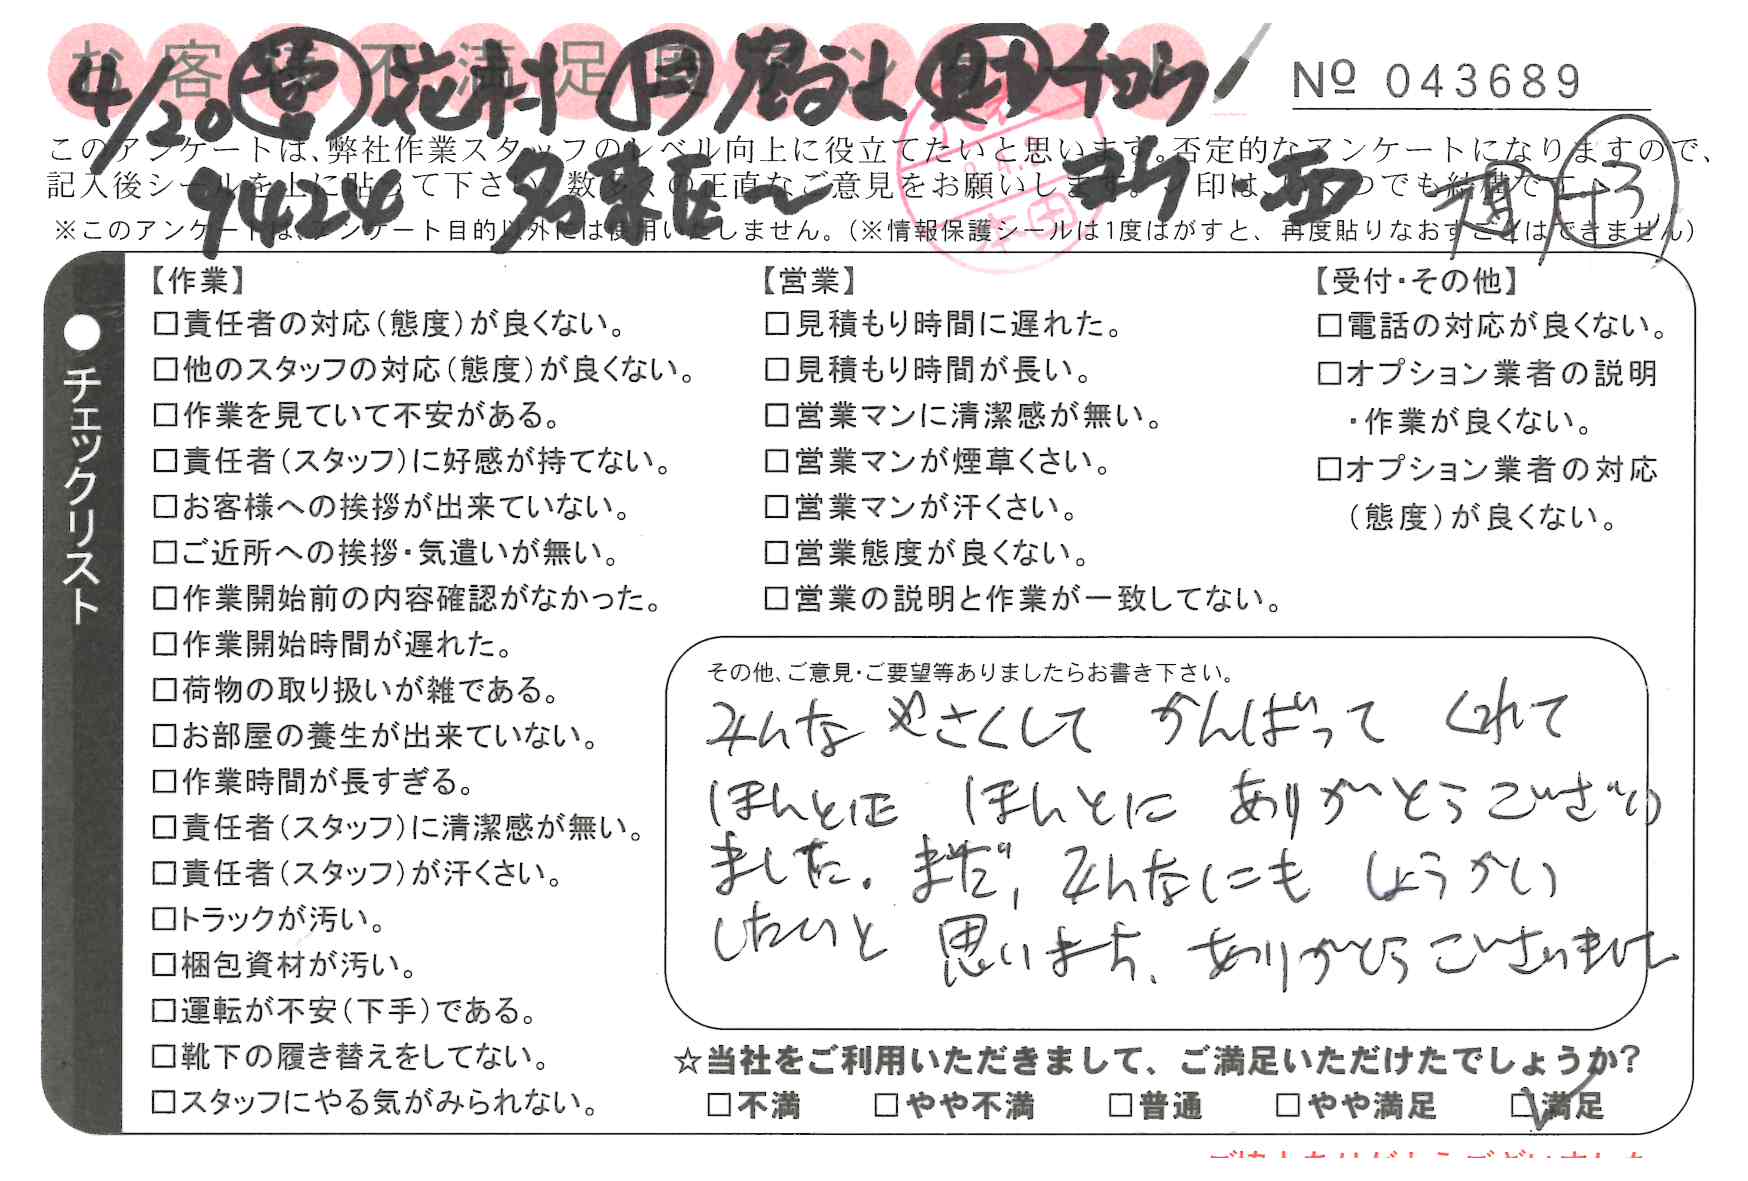 お客様不満足度アンケート
4/20 営 花村
9424 名東区〜
№ 043689
このアンケートは、弊社作業スタッフのレベル向上に役立てたいと思います。否定的なアンケートになりますので、
記入後シールを上に貼って下さい。数多くの正直なご意見をお願いします。 印は、いくつでも結構です。
※このアンケートは、アンケート目的以外には使用いたしません。(※情報保護シールは1度はがすと、再度貼りなおすことはできません)
+3
●チェックリスト
【作業】
□責任者の対応(態度)が良くない。
□他のスタッフの対応(態度)が良くない。
□作業を見ていて不安がある。
□責任者(スタッフ)に好感が持てない。
□お客様への挨拶が出来ていない。
□ご近所への挨拶・気遣いが無い。
□作業開始前の内容確認がなかった。
□作業開始時間が遅れた。
□荷物の取り扱いが雑である。
□お部屋の養生が出来ていない。
□作業時間が長すぎる。
□責任者(スタッフ)に清潔感が無い。
□責任者(スタッフ)が汗くさい。
□トラックが汚い。
□梱包資材が汚い。
□運転が不安(下手)である。
□靴下の履き替えをしてない。
□スタッフにやる気がみられない。
【営業】
□見積もり時間に遅れた。
□見積もり時間が長い。
□営業マンに清潔感が無い。
□営業マンが煙草くさい。
□営業マンが汗くさい。
□営業態度が良くない。
□営業の説明と作業が一致してない。
【受付・その他】
□電話の対応が良くない。
□オプション業者の説明
・作業が良くない。
□オプション業者の対応
(態度)が良くない。
その他、ご意見・ご要望等ありましたらお書き下さい。
みんな やさくして がんばって くれて
ほんとに ほんとに ありがとうございり
ました。まだ、みんなにも しょうかい
したいと 思います、ありがとうございました
☆当社をご利用いただきまして、ご満足いただけたでしょうか?
□不満 □やや不満 □普通 □やや満足 ☑満足
ご協力ありがとうございました